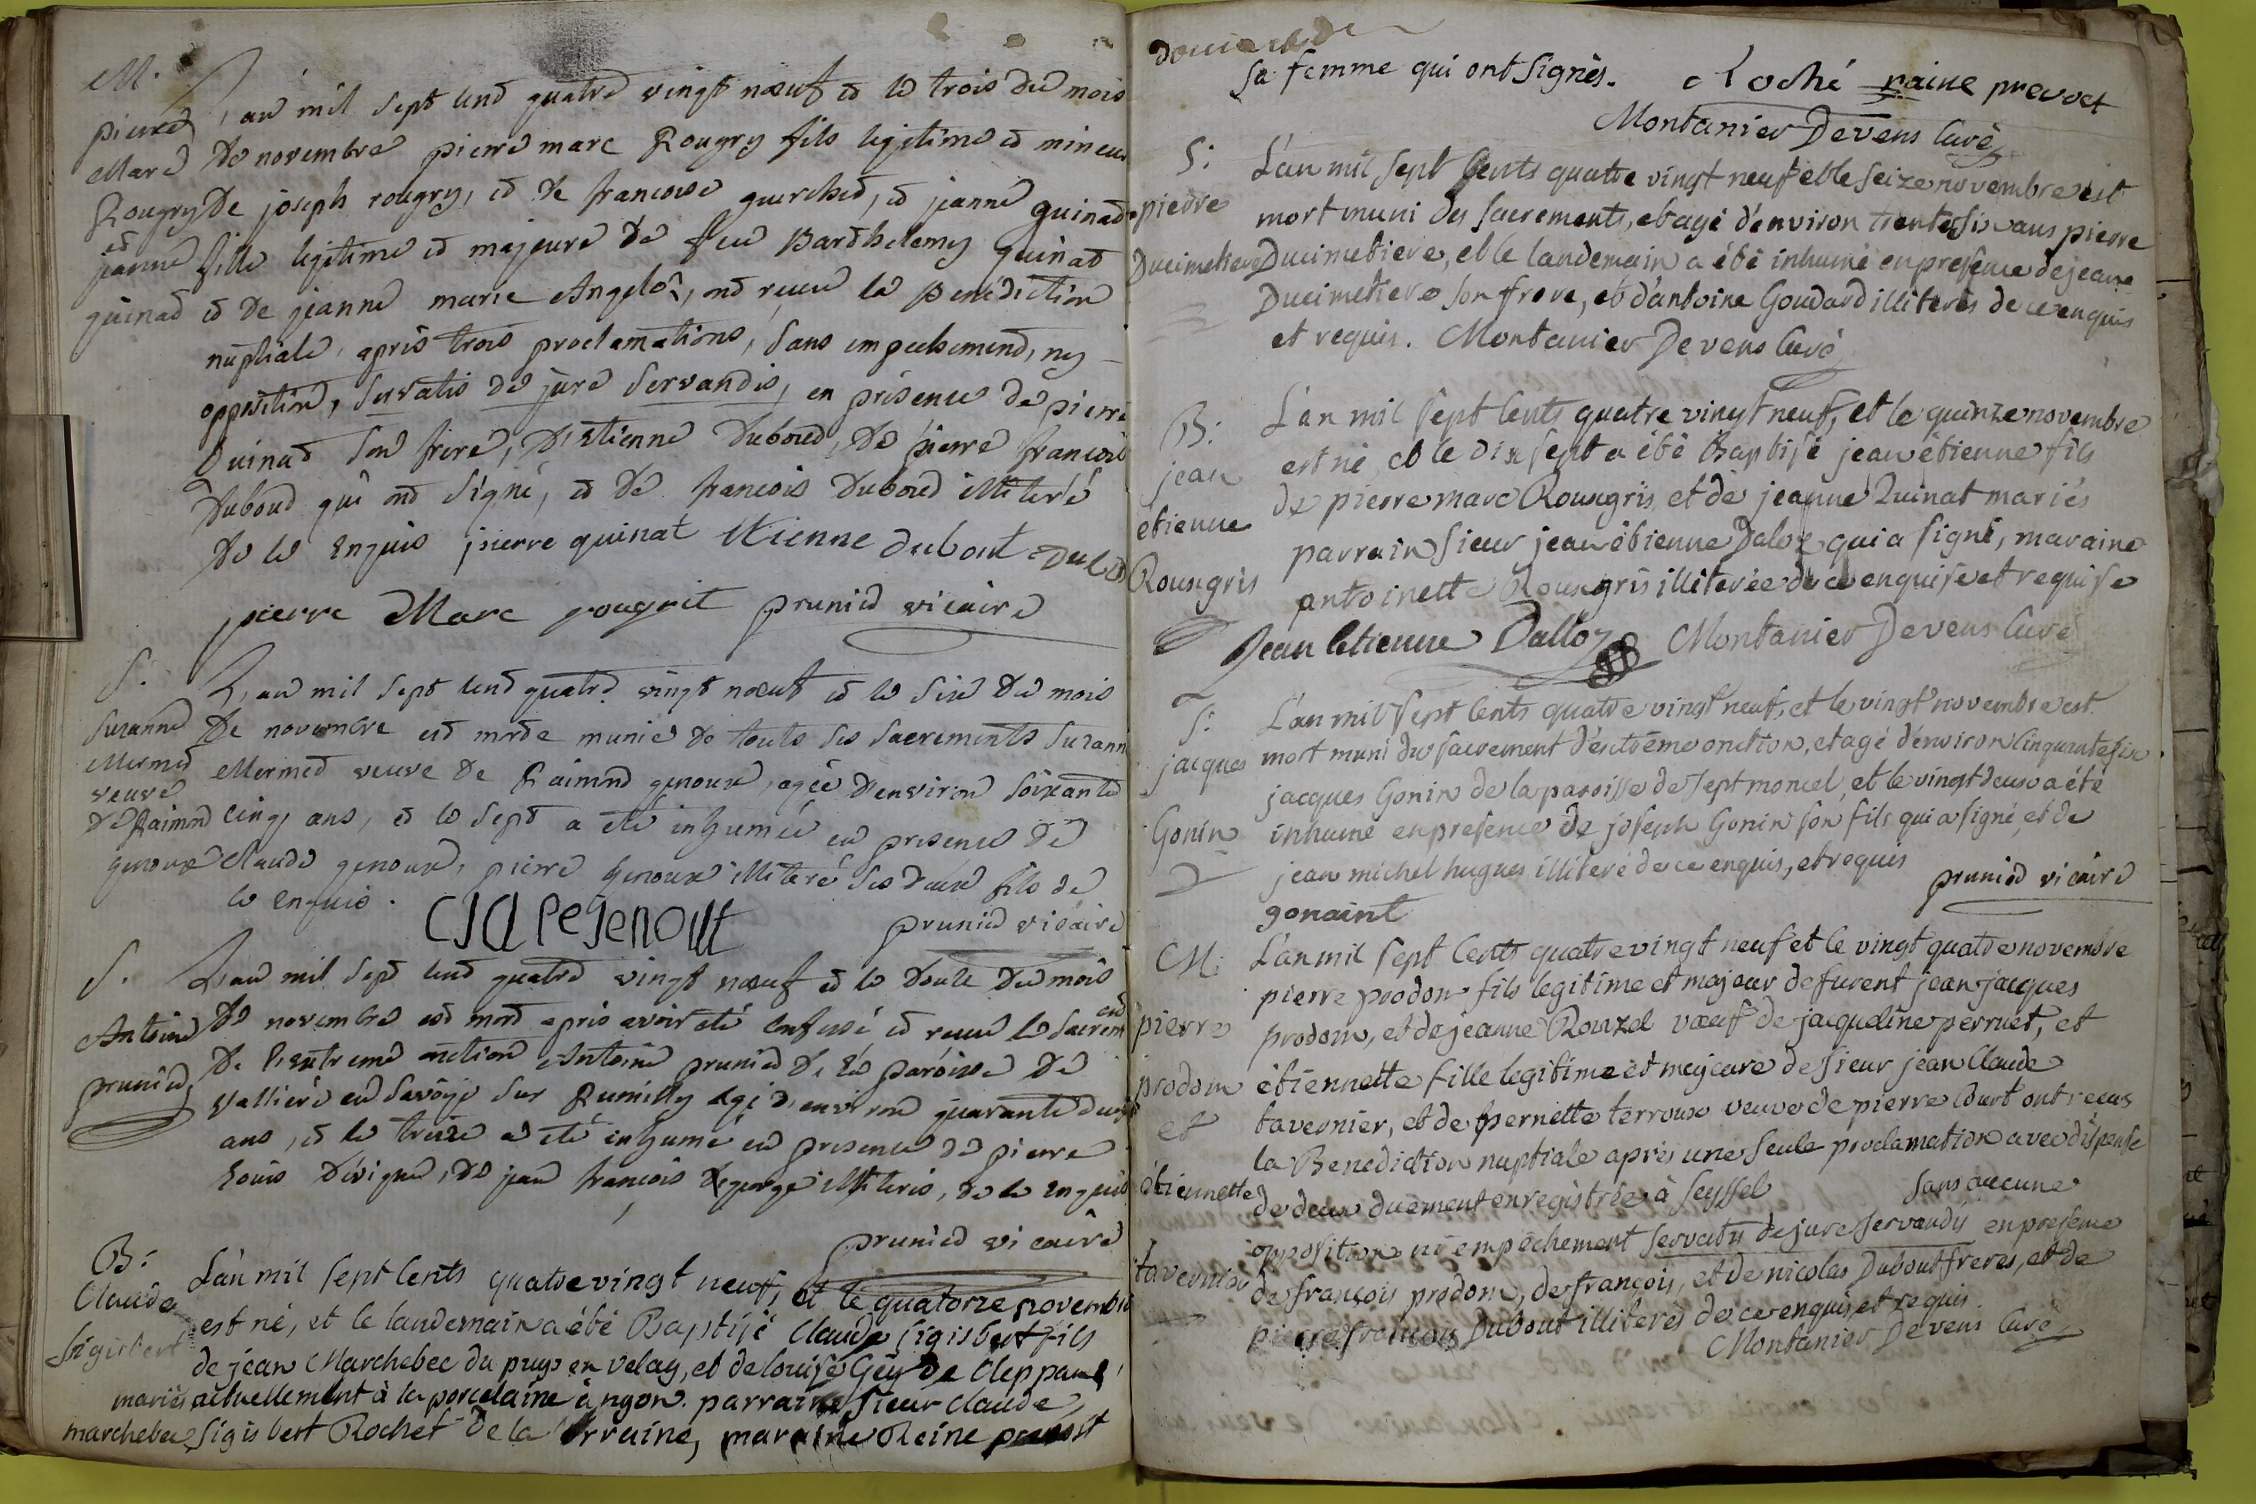 M.
pierre
Marc
Rougry
et
jeanne
quinat
L'an mil sept cent quatre vingt nœuf et le trois du mois
de novembre pierre marc Rougry fils legitime et mineur
de joseph rougry, et de francoise guerchet, et jeanne quinat
fille legitime et majeure de feu Barthelemy quinat
et de jeanne marie Angelo, ont recu la Benediction
nuptiale, apres trois proclamations, sans empechement, ny
opposition, servatis de jure servandis, en presence de pierre
Quinat son frere, d'Etienne Duboud, de pierre francois
Duboud qui ont signé, et de francois Duboud illiteré
de ce Enquis pierre quinat Etienne dubout
pierre Marc rougrit prunier vicaire
S.
Suzanne
Mermet
veuve
de Raimond
genoux
L'an mil sept cent quatre vingt nœuf et le six du mois
de novembre est morte munie de touts ses sacrements Suzanne
Mermet veuve de Raimond genoux, agée d'environ soixante
cinq ans, et le sept a eté inhumée en presence de
Claude genoux, pierre genoux illiteré ses deux fils de
ce enquis.
prunier vicaire
S.
Antoine
prunier
L'an mil sept cent quatre vingt nœuf et le douze du mois
de novembre est mort apres avoir eté confessé et recu le sacrement
de l'extreme onction Antoine prunier de la paroisse de
Valliere en savoye sur Rumilly agé d'environ quarante deux
ans, et le treize a eté inhumé en presence de pierre
Louis Devigne, de jean francois degeorge illiterés, de ce enquis
prunier vicaire
B:
Claude
Sigisbert
marchebec
L'an mil sept cents quatre vingt neuf, et le quatorze novembre
est né, et le landemain a été Baptisé Claude sigisbert fils
de jean Marchebec du puys en velay, et de louise Gey de Cleppaux
mariés actuellement à la porcelaine à ngon. parrain sieur claude
sigisbert Rochet de la lorraine, maraine Reine prevost
sa femme qui ont signés. c Roché raine prevost
Montanier Devens Curé
S:
pierre
Ducimetiere
L'an mil sept Cents quatre vingt neuf et le seize novembre est
mort muni des sacrements, et agé d'environ trente six ans pierre
Ducimetiere, et le landemain a été inhumé en presence de jean
Ducimetiere son frere, et d'antoine Goudard illiterés de ce enquis
et requis. Montanier Devens Curé
B:
jean
etienne
Rousgris
L'an mil sept Cents quatre vingt neuf, et le quinze novembre
est né et le dix sept a été Baptisé jean étienne fils
de pierre marc Rousgris et de jeanne Quinat mariés
parrain sieur jean étienne Daloz qui a signé, maraine
antoinette Rousgris illiterée de ce enquise et requise
Jean Etienne Dalloz Montanier Devens Curé
S:
jacques
Gonin
L'an mil sept Cents quatre vingt neuf, et le vingt novembre est
mort muni du sacrement d'extrême onction, et agé d'environ Cinquante six
jacques Gonin de la paroisse de septmoncel, et le vingt deux a été
inhumé en presence de joseph Gonin son fils qui a signé, et de
jean michel hugues illiteré de ce enquis, et requis
gonaint prunier vicaire
M:
pierre
prodon
et
étiennette
tavernier
L'an mil sept Cents quatre vingt neuf et le vingt quatre novembre
pierre prodon fils legitime et majeur de furent jean jacques
prodon, et de jeanne Rouzel vœuf de jacqueline perruet, et
étiennette fille legitime et majeure de sieur jean Claude
tavernier, et de pernette terroux veuve de pierre Court ont recus
la Benediction nuptiale après une seule proclamation avec dispense
de deux duement enregistrée à seyssel sans aucune
opposition ni empêchement servatis de jure servandis en presence
de françois prodon, de françois, et de nicolas Dubout freres, et de
pierre francois Dubout illiterés de ce enquis et requis.
Montanier Devens Curé